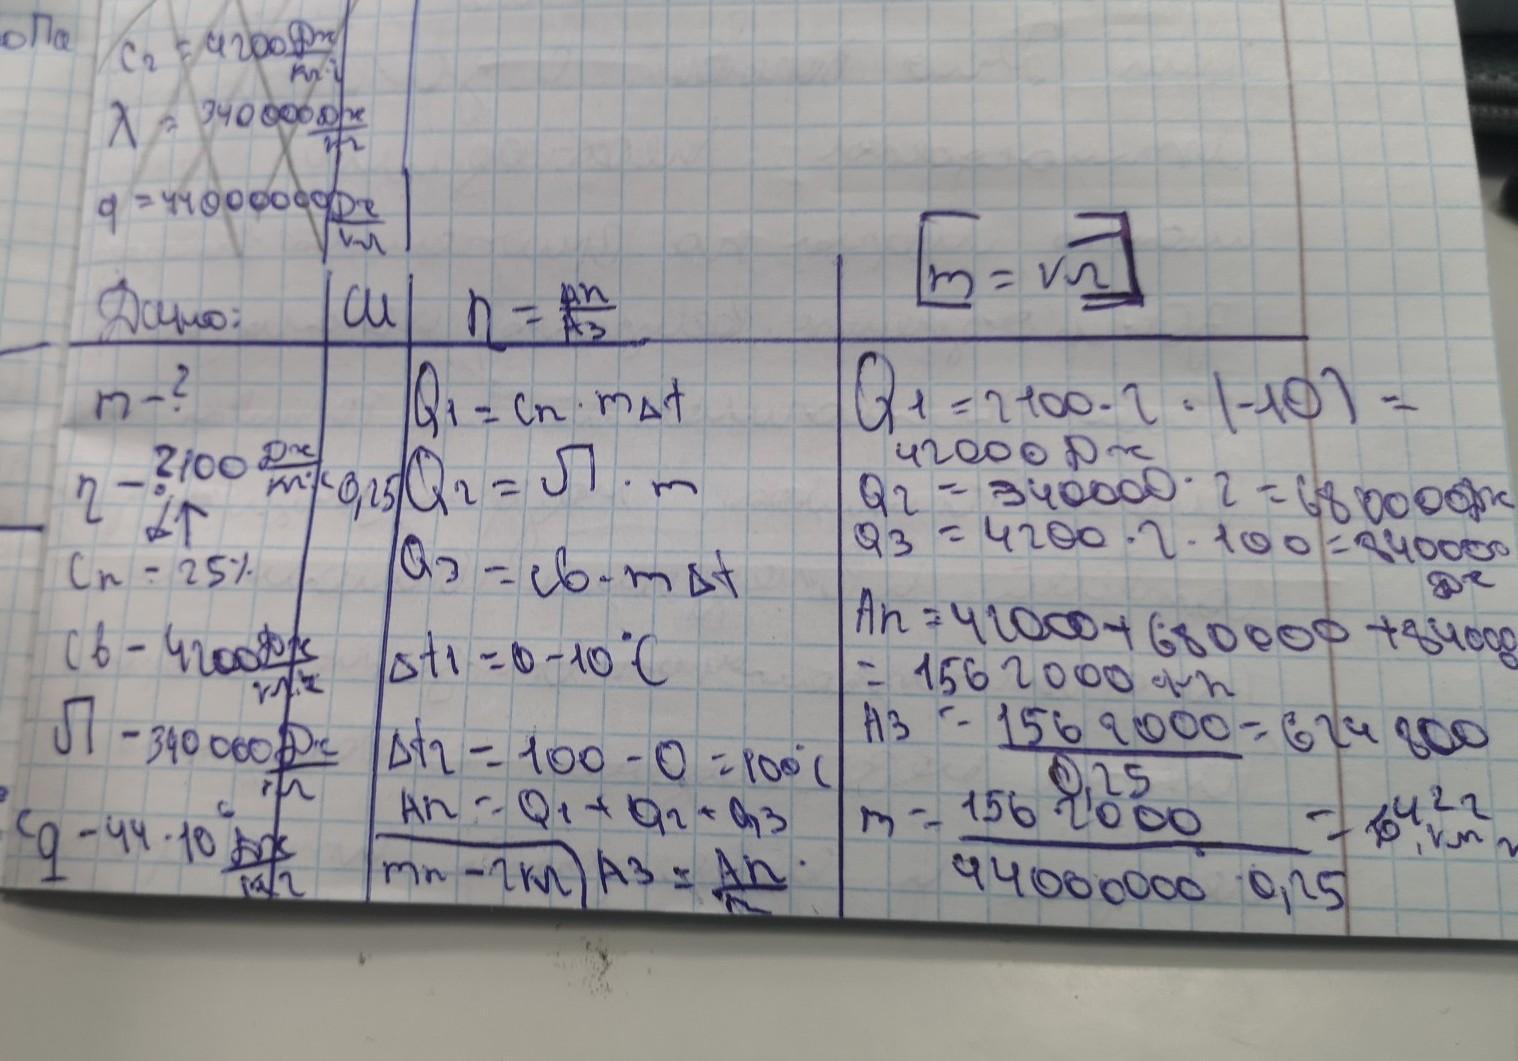 оПа
c₂ = 4200 Дж/кг·°C
λ = 340000 Дж/кг
q = 44000000 Дж/кг
Дано:
m - ?
η - ? 2100 Дж/кг·°C
↑
Cл - 25%
Cв - 4200 Дж/кг·°C
Л - 340000 Дж/кг
q - 44·10⁶ Дж/кг
СИ
0,25
η = Aп/Aз
Q1 = Cл · mΔt
Q2 = Л · m
Q3 = Cв · mΔt
Δt1 = 0-10°C
Δt2 = 100 - 0 = 100°C
Aп = Q1 + Q2 + Q3
mл - 2кг
Aз = Aп/η
m = кг
Q1 = 2100 · 2 · (-10) =
42000 Дж
Q2 = 340000 · 2 = 680000 Дж
Q3 = 4200 · 2 · 100 = 840000
Дж
Aп = 42000 + 680000 + 84000
= 1562000
Aз = 1562000/0,25 = 624 800
m = 1562000/44000000 · 0,25 =